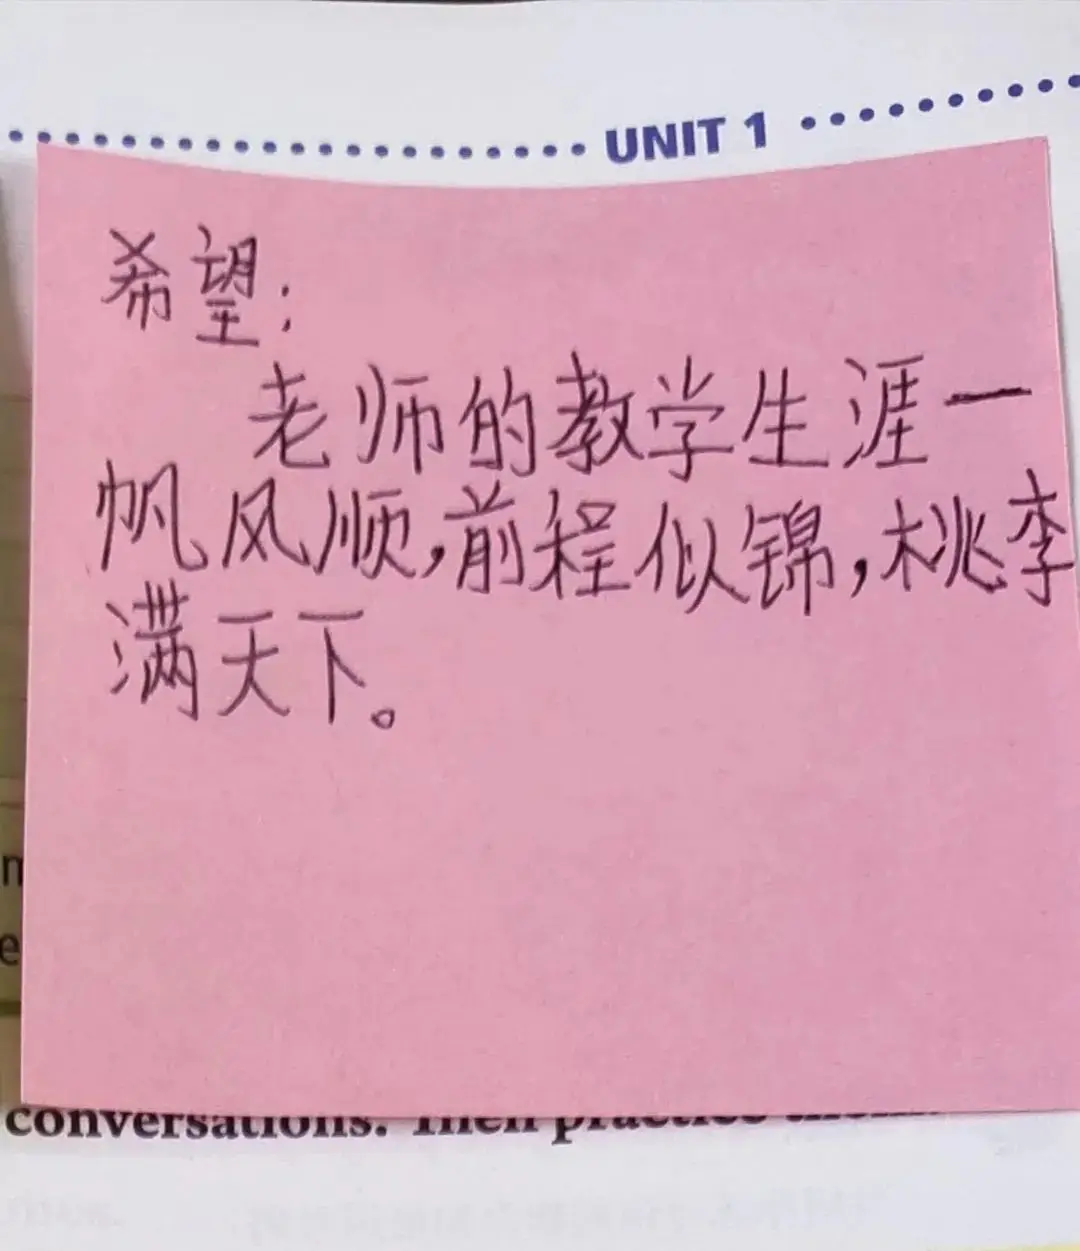 UNIT 1
希望:
老师的教学生涯一
帆风顺,前程似锦,桃李
满天下。
conversations. Then practice them.